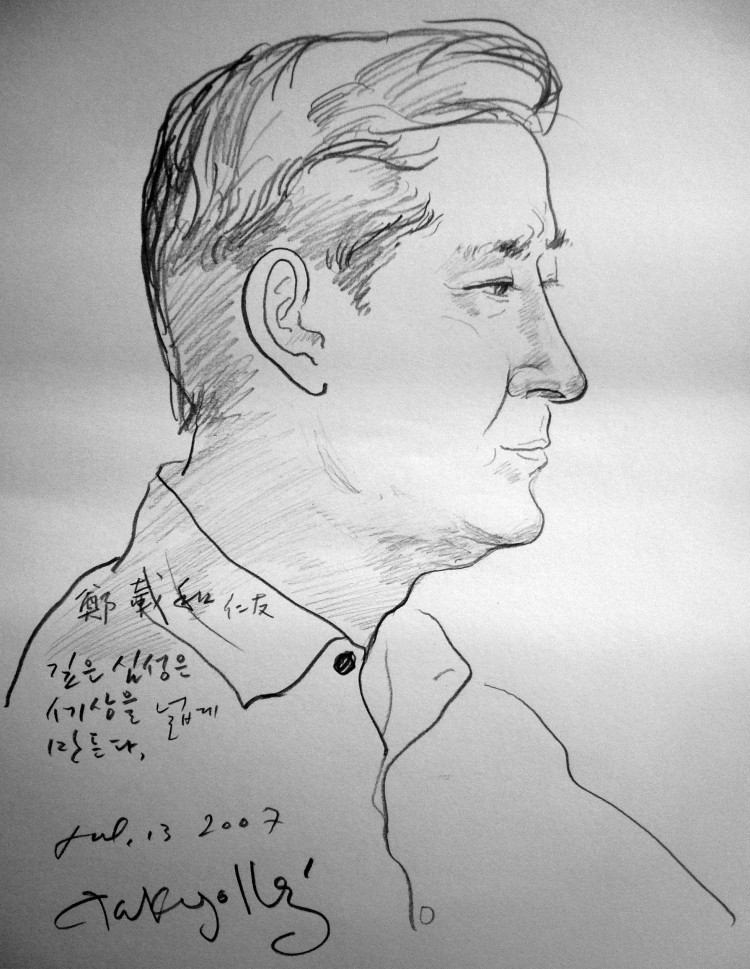 鄭 載 和 仁友
깊은 심성은
세상을 넓게
만든다,
Jul. 13 2007